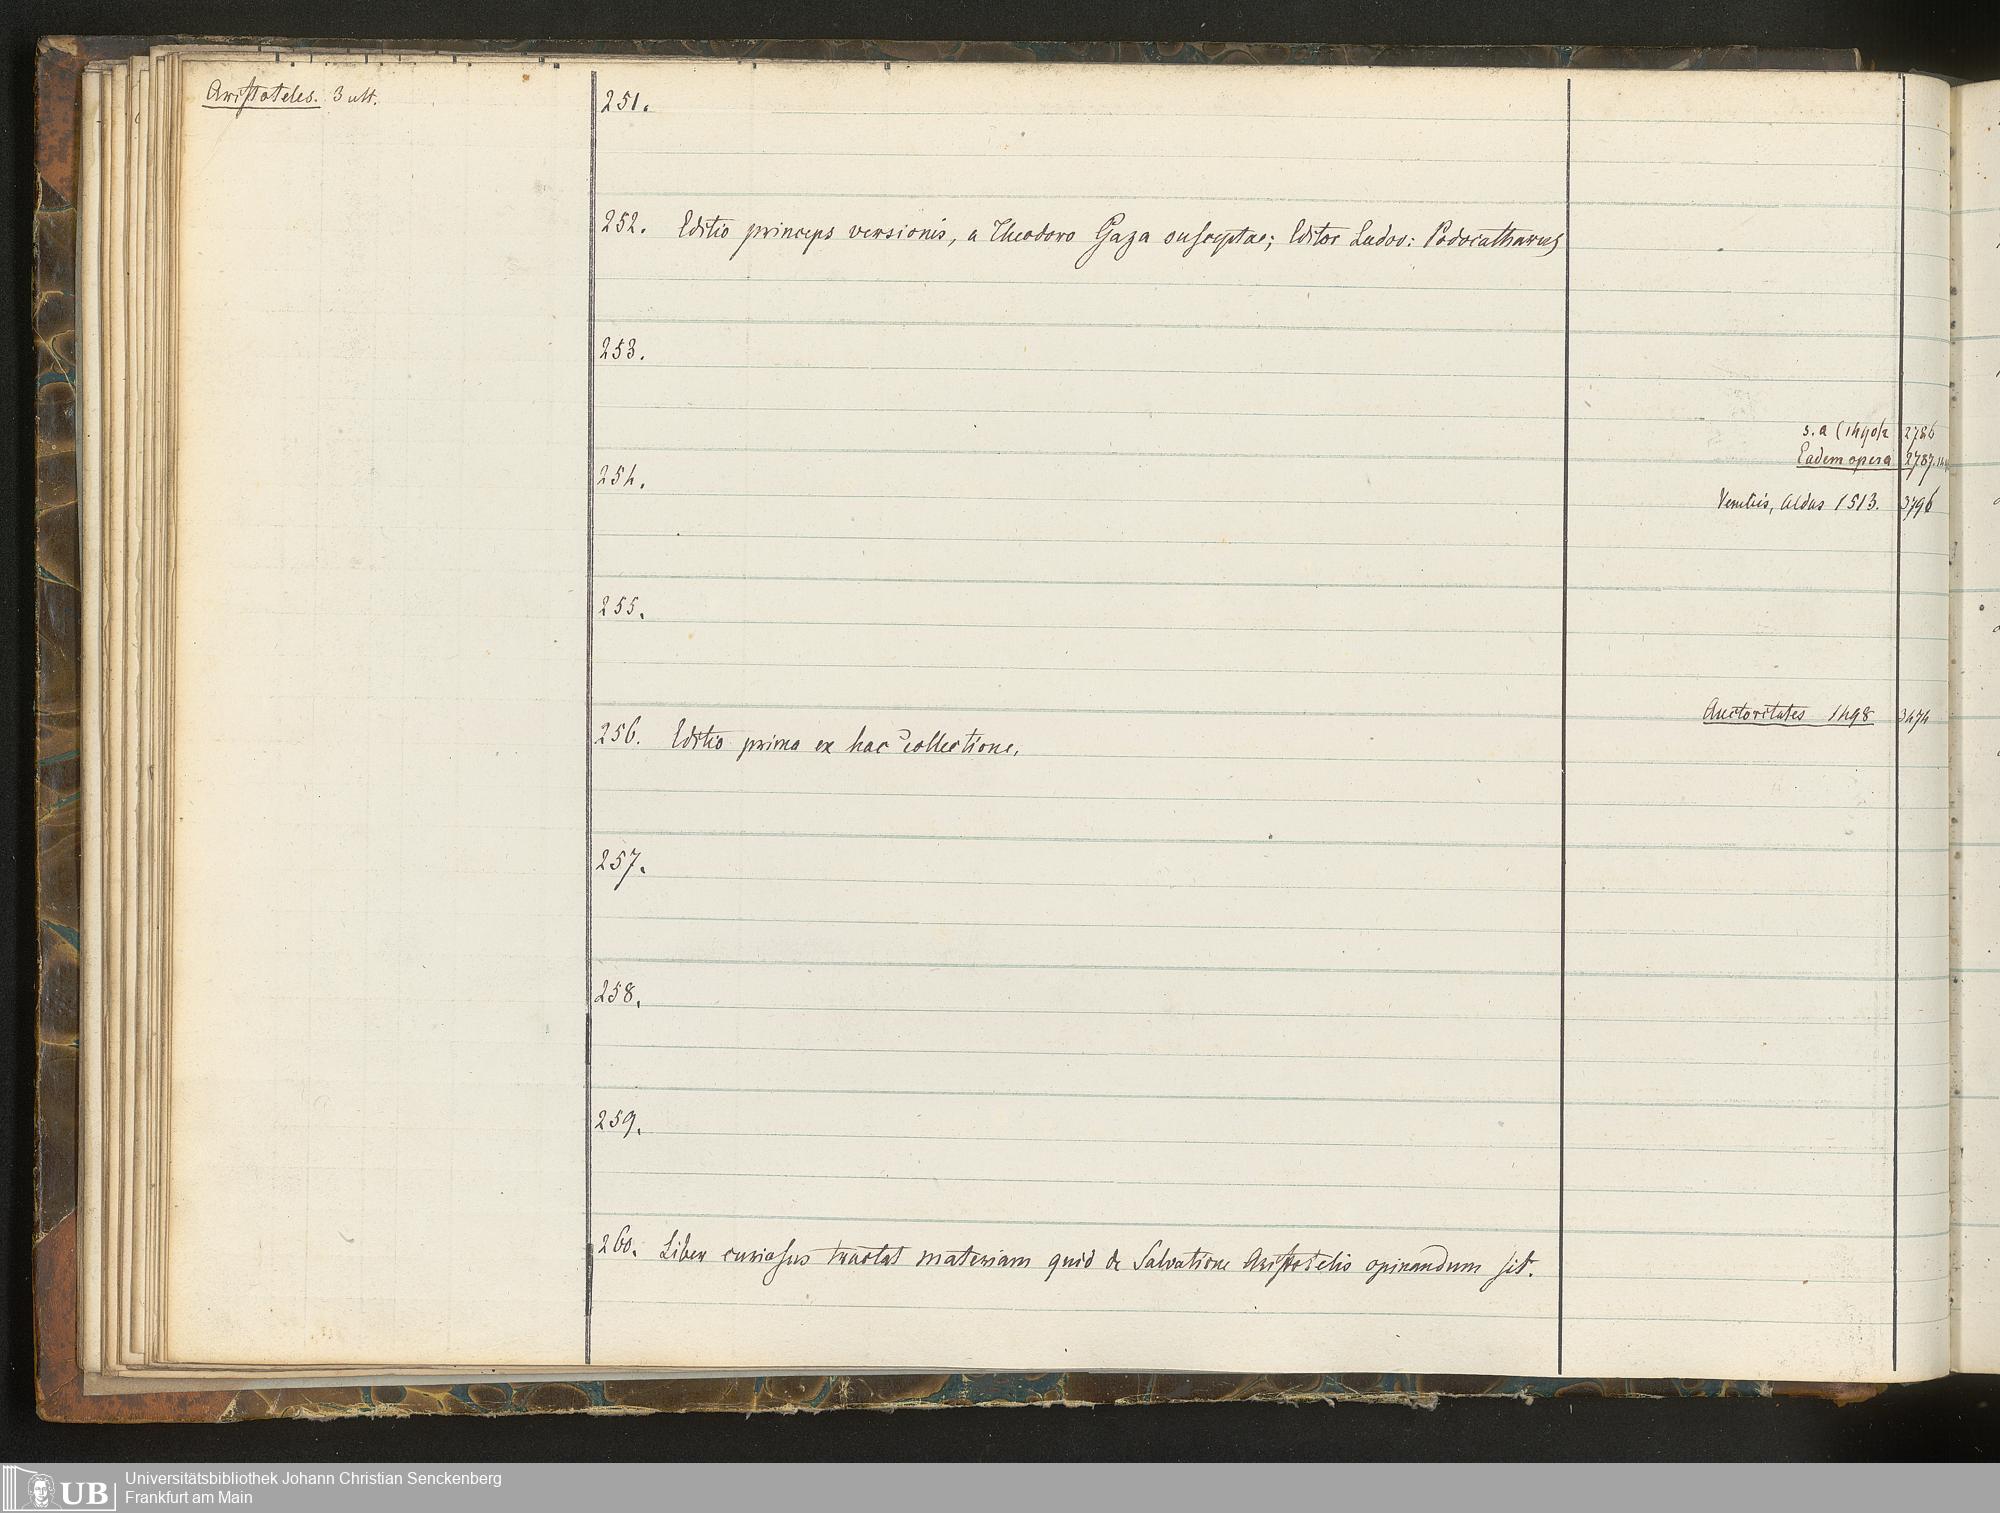 Aristoteles. 3 ult.
251.
252. Editio princeps versionis, a Theodoro Gaza susceptae; Editor Ludov: Podocatharus
253.
s. a (1490)2 2786
Eadem opera 2787.
254.
Venetiis, Aldus 1513. 3796
255.
Auctoritates 1498 3474
256. Editio prima ex hac collectione.
257.
258.
259.
260. Liber curiosus tractat materiam quid de Salvatione Aristotelis opinandum sit.
UB
Universitätsbibliothek Johann Christian Senckenberg
Frankfurt am Main